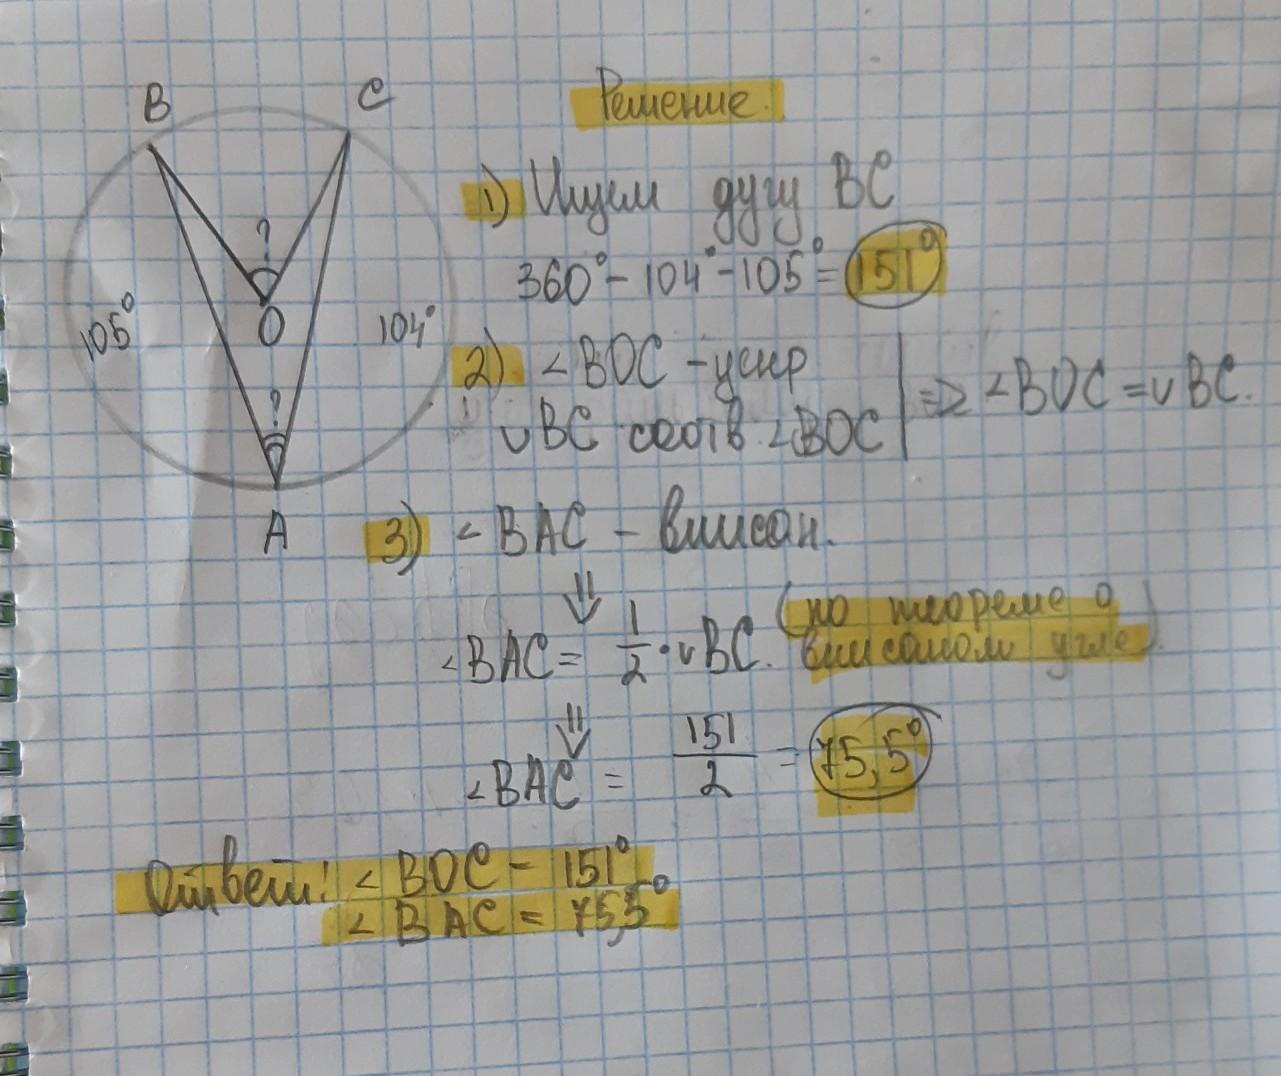 B C
Решение.
1) Ищем дугу BC
360° - 104° - 105° = 151°
?
O
105° 104°
2) ∠BOC - центр
∪BC соотв. ∠BOC | => ∠BOC = ∪BC.
?
A
3) ∠BAC - вписан.
⇓
∠BAC = 1/2 · ∪BC. (по теореме о
вписаном угле).
⇓
∠BAC = 151/2 = 75,5°
Ответ: ∠BOC - 151°
∠BAC = 75,5°